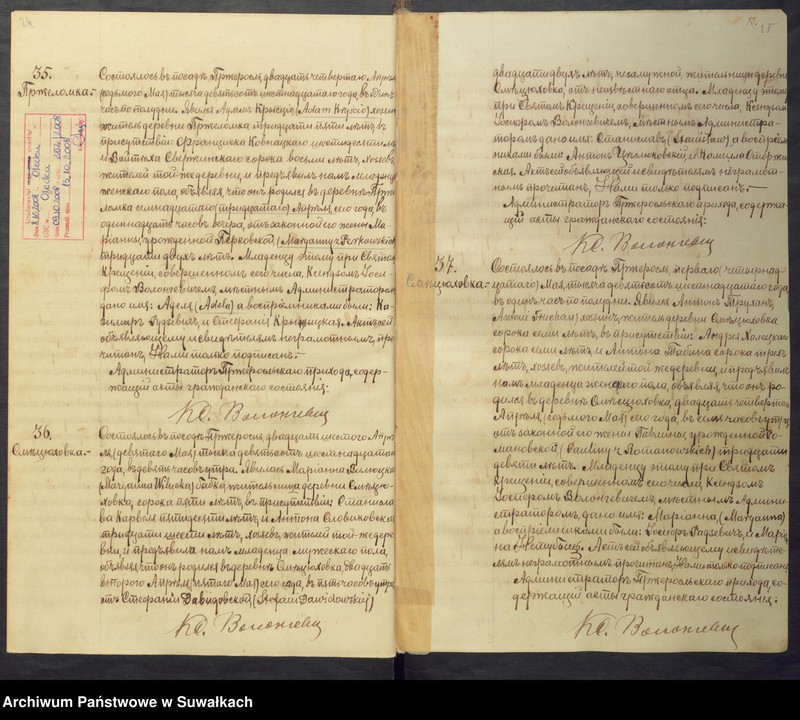 24
35.
Пржеломка.-
Состоялось въ посадѣ Пржеросль, двадцать четвертаго Апрѣля
(седьмого) Мая тысяча девятьсотъ шестнадцатаго года, въ
часъ по полудни. Явился Адамъ Крысцiо (Adam Kryścio), хозяинъ,
житель деревни Пржеломка тридцати пяти лѣтъ, въ
присутствiи: Францишка
и Войтѣха Свержинскаго сорока восьми лѣтъ, хозяевъ,
жителей той-же деревни, и предъявилъ намъ младенца
женскаго пола, объявляя, что онъ родился въ деревнѣ Прже-
ломка семнадцатаго (тридцатаго) Апрѣля сего года, въ
одиннадцать часовъ вечера, отъ законной его жены Ма-
рiанны, урожденной Перковской (Maryanny z Perkowskich)
тридцати двухъ лѣтъ. Младенцу этому при Святомъ
Крещенiи, совершенномъ сего числа, Ксендзомъ Iоси-
фомъ Волонгевичемъ, мѣстнымъ Администраторомъ
дано имя: Аделя (Adela), а воспрiемниками были: Ка-
зимiръ Гудевичъ и Стефанiя Крысцицкая. Актъ сей
объявляющему и свидѣтелямъ неграмотнымъ, про-
читанъ, Нами только подписанъ.-
Администраторъ Пржеросльскаго прихода, содер-
жащiй акты гражданскаго состоянiя:
Кс. Волонгевич
36.
Смѣцюховка.-
Состоялось въ посадѣ Пржеросль, двадцать шестого Апрѣ-
ля (девятаго Мая) тысяча девятьсотъ шестнадцатаго
года, въ девять часовъ утра. Явилась Марiанна Вилюцка
(Maryanna Wilucka) бабка, жительница деревни Смѣцю-
ховка, сорока пяти лѣтъ, въ присутствiи: Станисла-
ва Карвеля пятидесяти лѣтъ, и Антона Словиковскаго
тридцати шести лѣтъ, хозяевъ, жителей той-же дерев-
ни, и предъявила намъ младенца мужескаго пола,
объявляя, что онъ родился въ деревнѣ Смѣцюховка, двадцать
второго Апрѣля (пятаго Мая) сего года, въ пять часовъ утра
отъ Стефанiи Давидовской (Stefanii Dawidowskiej)
Кс. Волонгевич
25
двадцати двухъ лѣтъ, незамужной, жительницы деревни
Смѣцюховка, отъ неизвѣстнаго отца. Младенцу этому
при Святомъ Крещенiи, совершенномъ сего числа, Ксендзомъ
Iосифомъ Волонгевичемъ, мѣстнымъ Администра-
торомъ дано имя: Станиславъ (Stanisław), а воспрiем-
никами были: Антонъ и Камилла
Актъ сей объявляющей и свидѣтелямъ неграмот-
нымъ прочитанъ, Нами только подписанъ.-
Администраторъ Пржеросльскаго прихода, содержа-
щiй акты гражданскаго состоянiя:
Кс. Волонгевич
37.
Смѣцюховка.-
Состоялось въ посадѣ Пржеросль, перваго (четырнад-
цатаго) Мая тысяча девятьсотъ шестнадцатаго года,
въ одинъ часъ по полудни. Явился Антонъ Труханъ
(Antoni Truchan) хозяинъ, житель деревни Смѣцюховка
сорока семи лѣтъ, въ присутствiи: Андрея
сорока семи лѣтъ и Антона сорока трехъ
лѣтъ, хозяевъ, жителей той-же деревни, и предъявилъ
намъ младенца женскаго пола, объявляя, что онъ ро-
дился въ деревнѣ Смѣцюховка, двадцать четвертаго
Апрѣля (седьмого Мая) сего года, въ семь часовъ утра
отъ законной его жены Павлины, урожденной Ро-
мановской (Pauliny z Romanowskich) тридцати
девяти лѣтъ. Младенцу этому при Святомъ
Крещенiи, совершенномъ сего числа, Ксендзомъ
Iосифомъ Волонгевичемъ, мѣстнымъ Админи-
страторомъ, дано имя: Марiанна (Maryanna)
а воспрiемниками были: Iосифъ Радзевичъ, и Марiан-
на Актъ сей объявляющему и свидѣте-
лямъ неграмотнымъ прочитанъ, Нами только подписанъ
Администраторъ Пржеросльскаго прихода, со-
держащiй акты гражданскаго состоянiя:
Кс. Волонгевич
Archiwum Państwowe w Suwałkach